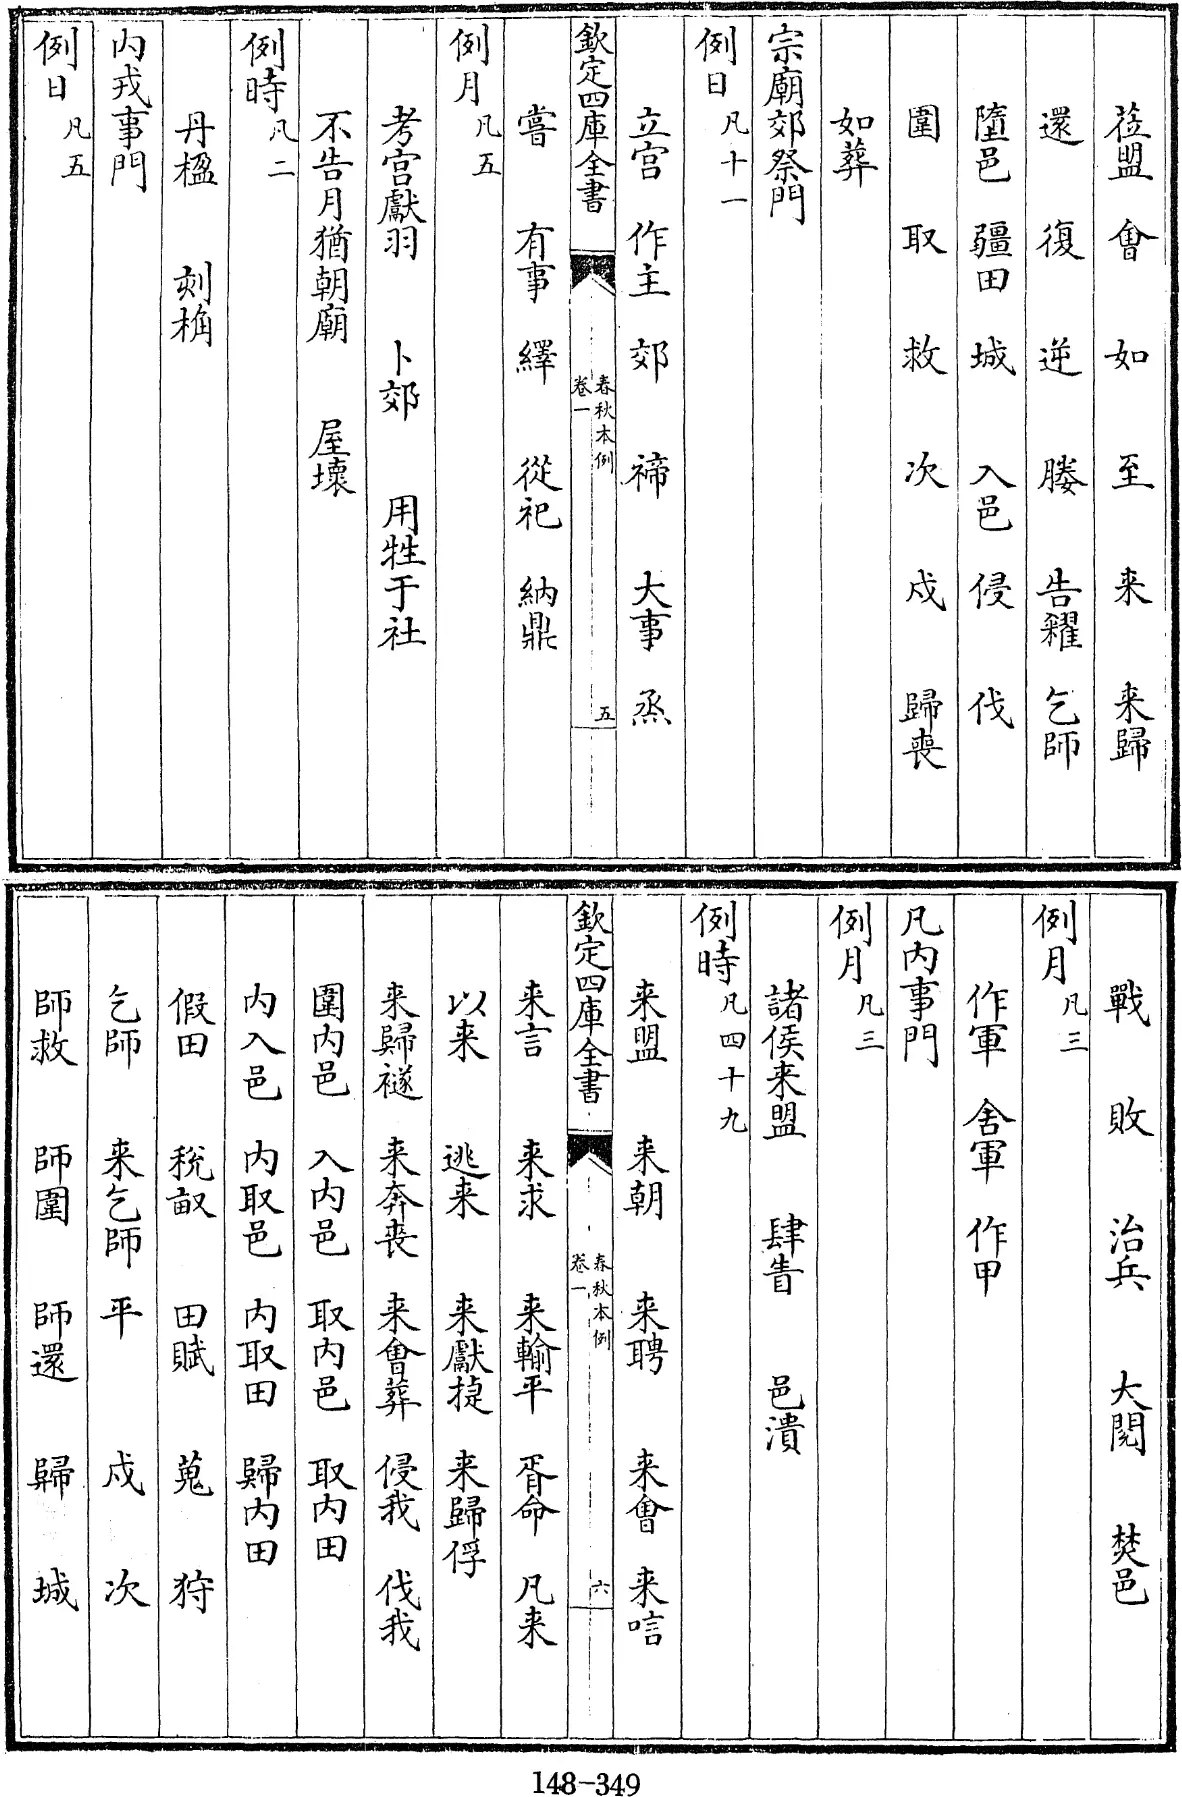 蒞盟 會 如 至 来 来歸
還 復 逆 媵 告糴 乞師
墮邑 疆田 城 入邑 侵 伐
圍 取 救 次 戍 歸喪
如葬
宗廟郊祭門
例日 凡十一
立宫 作主 郊 禘 大事 烝
欽定四庫全書 春秋本例 卷一 五
嘗 有事 繹 從祀 納鼎
例月 凡五
考宫獻羽 卜郊 用牲于社
不告月猶朝廟 屋壊
例時 凡二
丹楹 刻桷
内戎事門
例日 凡五
戰 敗 治兵 大閱 焚邑
例月 凡三
作軍 舍軍 作甲
凡内事門
例月 凡三
諸侯来盟 肆眚 邑潰
例時 凡四十九
来盟 来朝 来聘 来會 来唁
欽定四庫全書 春秋本例 卷一 六
来言 来求 来輸平 胥命 凡来
以来 逃来 来獻捷 来歸俘
来歸襚 来奔喪 来會葬 侵我 伐我
圍内邑 入内邑 取内邑 取内田
内入邑 内取邑 内取田 歸内田
假田 税畝 田賦 蒐 狩
乞師 来乞師 平 戍 次
師救 師圍 師還 歸 城
148-349